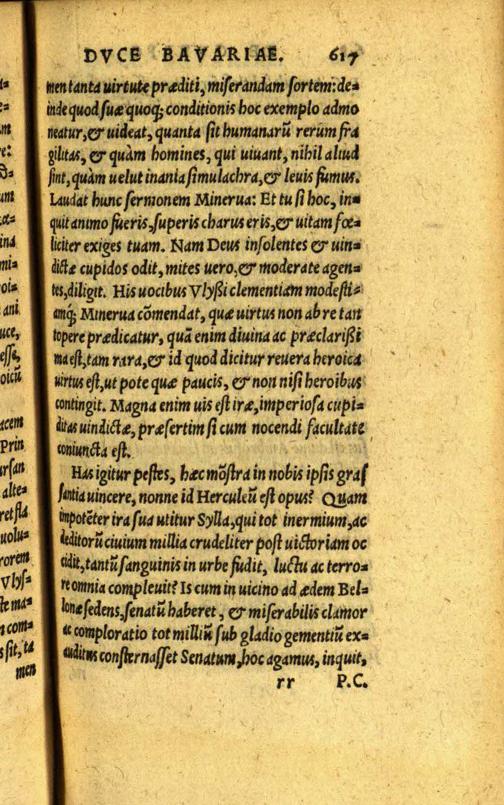 DVCE BAVARIAE. 617
men tanta uirtute præditi, miserandam sortem: de-
inde quod suæ quoq; conditionis hoc exemplo admo
neatur, & uideat, quanta sit humanarũ rerum fra
gilitas, & quàm homines, qui uiuant, nihil aliud
sint, quàm uelut inania simulachra, & leuis fumus.
Laudat hunc sermonem Minerua: Et tu si hoc, in-
quit animo fueris, superis charus eris, & uitam fœ-
liciter exiges tuam. Nam Deus insolentes & uin-
dictæ cupidos odit, mites uero, & moderate agen-
tes, diligit. His uocibus Vlyßi clementiam modesti-
amq; Minerua cõmendat, quæ uirtus non ab re tan
topere prædicatur, quã enim diuina ac præclarißi
ma est, tam rara, & id quod dicitur reuera heroica
uirtus est, ut pote quæ paucis, & non nisi heroibus
contingit. Magna enim uis est iræ, imperiosa cupi-
ditas uindictæ, præsertim si cum nocendi facultate
coniuncta est.
Has igitur pestes, hæc mõstra in nobis ipsis gras
santia uincere, nonne id Herculeũ est opus? Quam
impotẽter ira sua utitur Sylla, qui tot inermium, ac
deditorũ ciuium millia crudeliter post uictoriam oc
cidit, tantũ sanguinis in urbe fudit, luctu ac terro-
re omnia compleuit? Is cum in uicino ad ædem Bel-
lonæ sedens, senatũ haberet, & miserabilis clamor
ac comploratio tot milliũ sub gladio gementiũ ex-
auditus consternasset Senatum, hoc agamus, inquit,
rr P.C.